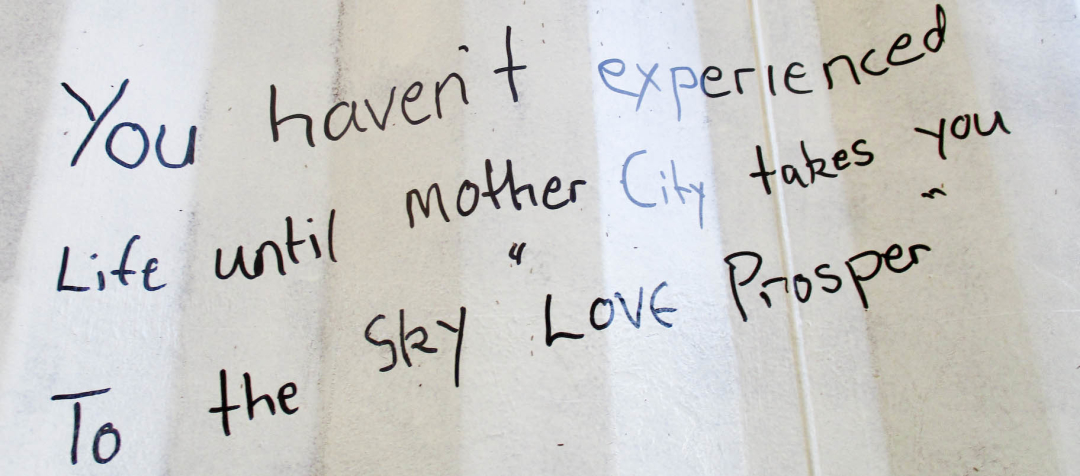 You haven't experienced
Life until mother City takes you
To the Sky "Love Prosper"